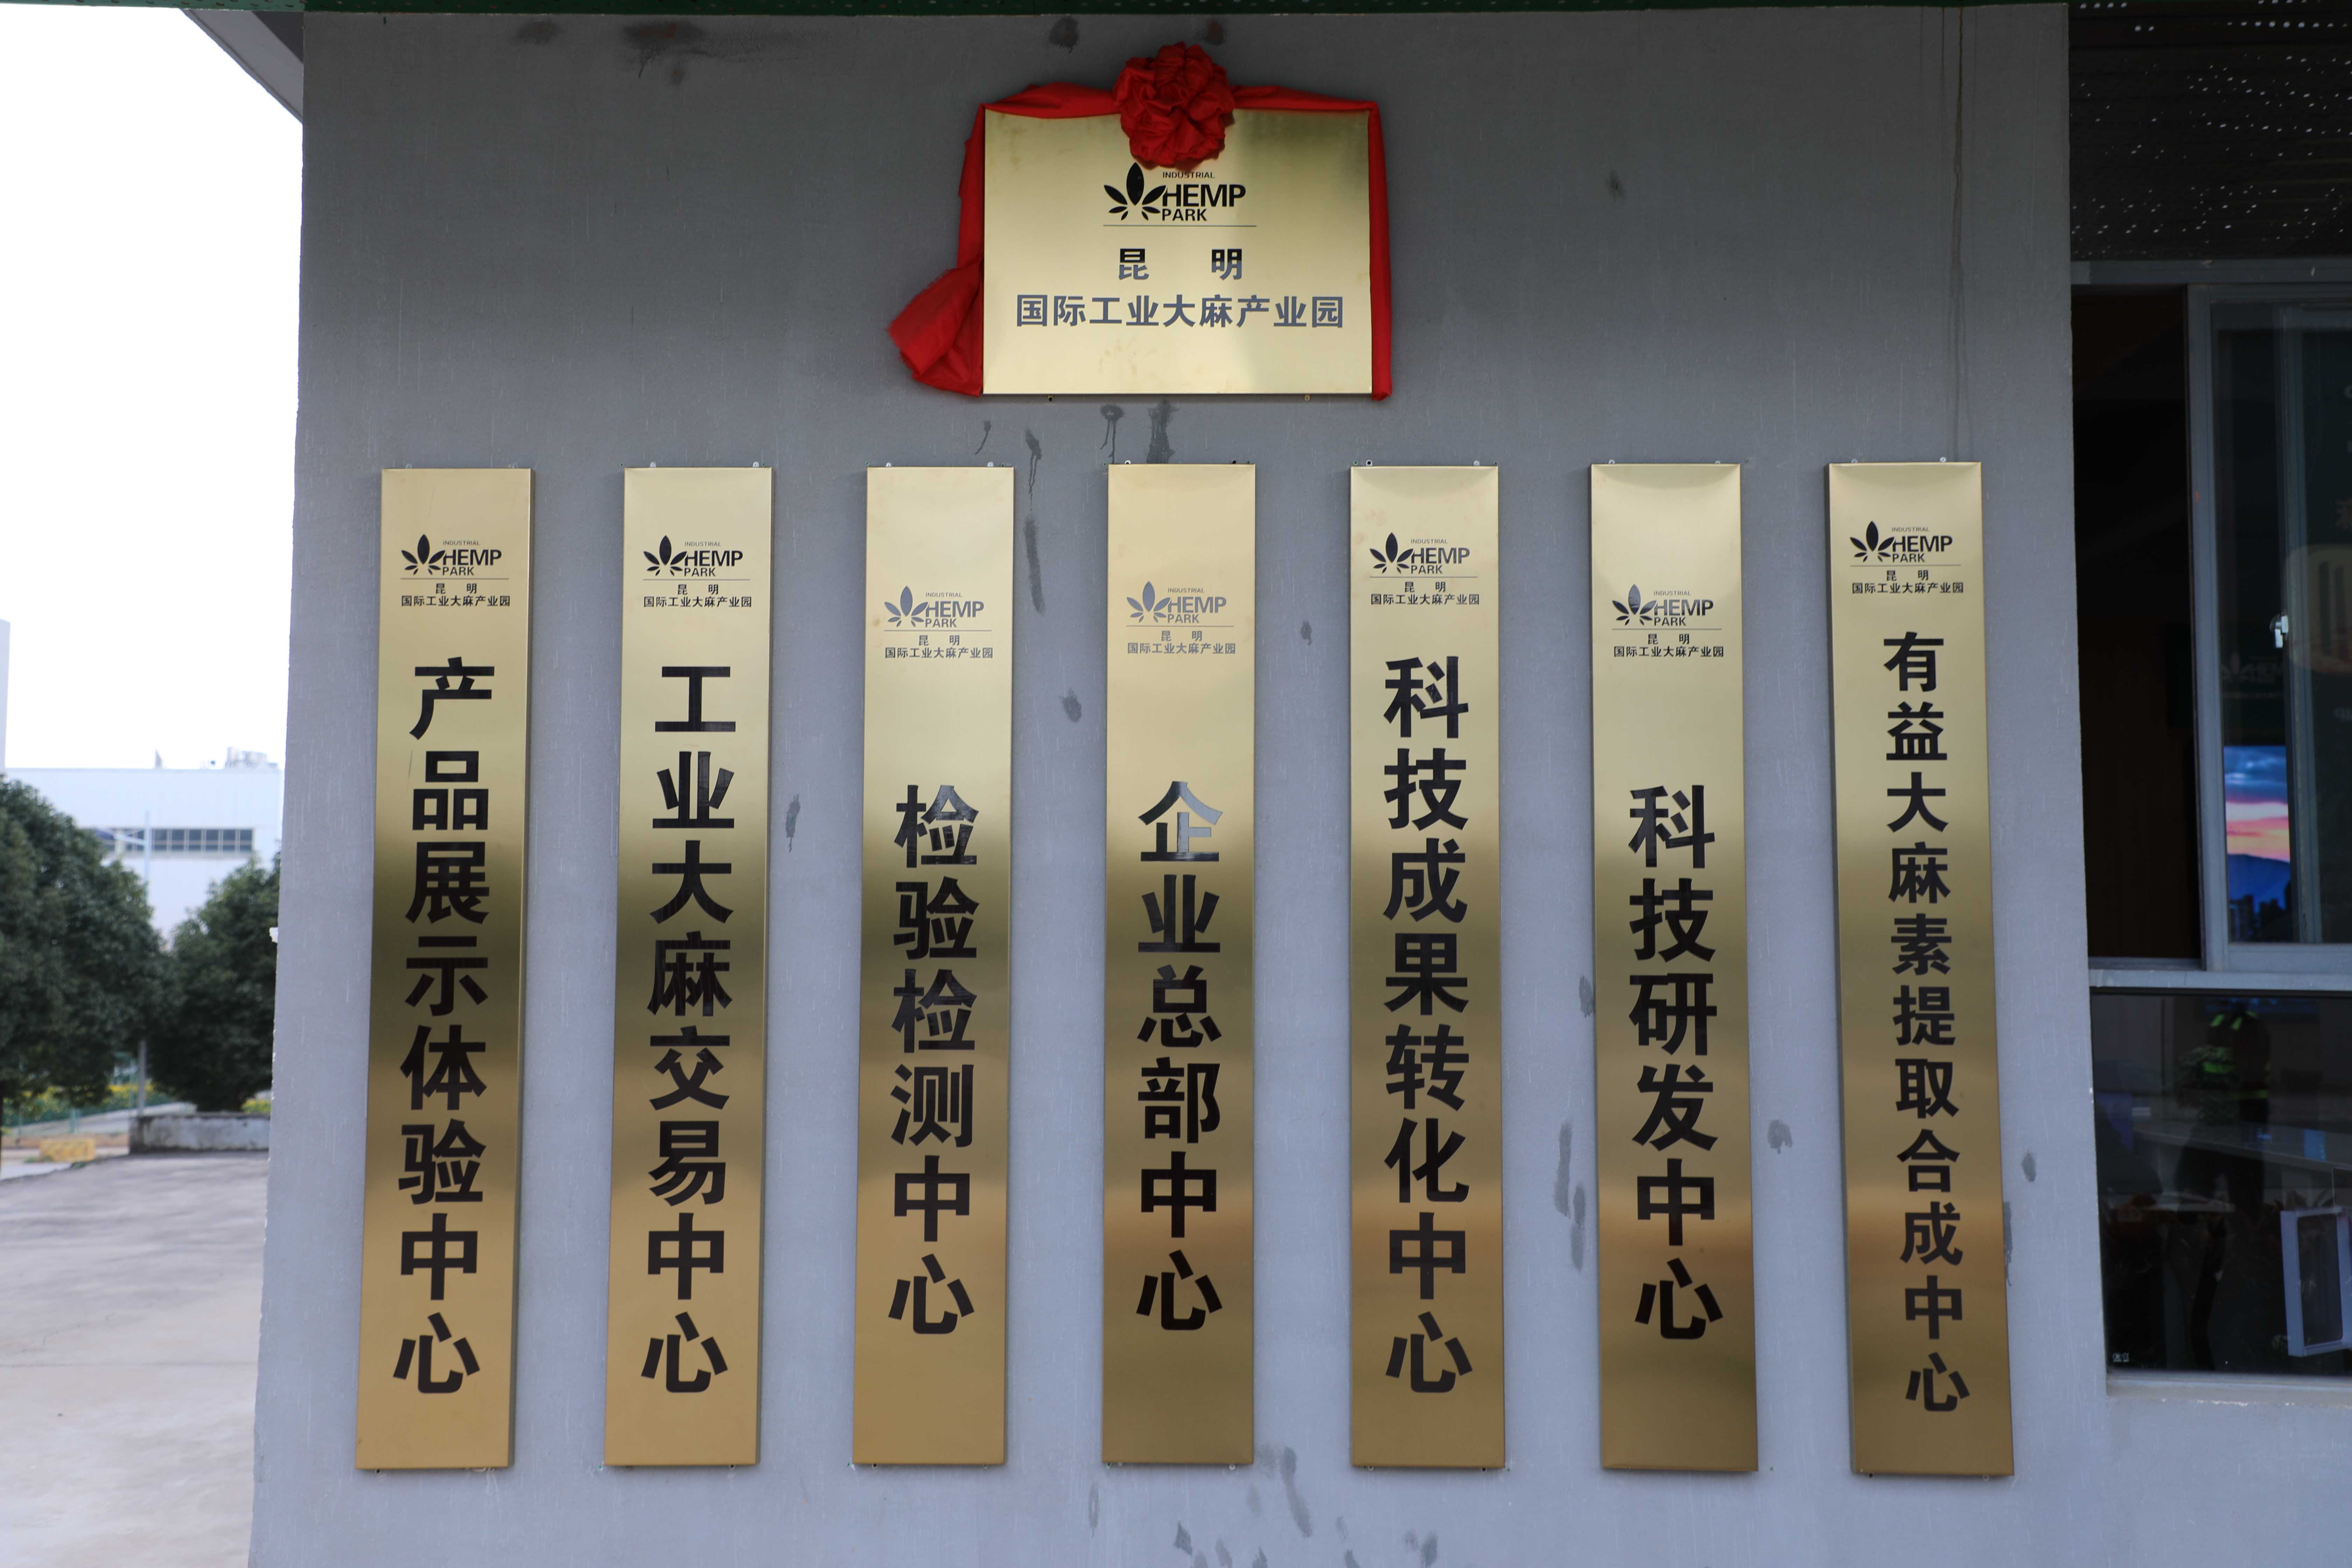 INDUSTRIAL
HEMP
PARK
昆 明
国际工业大麻产业园
INDUSTRIAL
HEMP
PARK
昆 明
国际工业大麻产业园
产品展示体验中心
INDUSTRIAL
HEMP
PARK
昆 明
国际工业大麻产业园
工业大麻交易中心
INDUSTRIAL
HEMP
PARK
昆 明
国际工业大麻产业园
检验检测中心
INDUSTRIAL
HEMP
PARK
昆 明
国际工业大麻产业园
企业总部中心
INDUSTRIAL
HEMP
PARK
昆 明
国际工业大麻产业园
科技成果转化中心
INDUSTRIAL
HEMP
PARK
昆 明
国际工业大麻产业园
科技研发中心
INDUSTRIAL
HEMP
PARK
昆 明
国际工业大麻产业园
有益大麻素提取合成中心